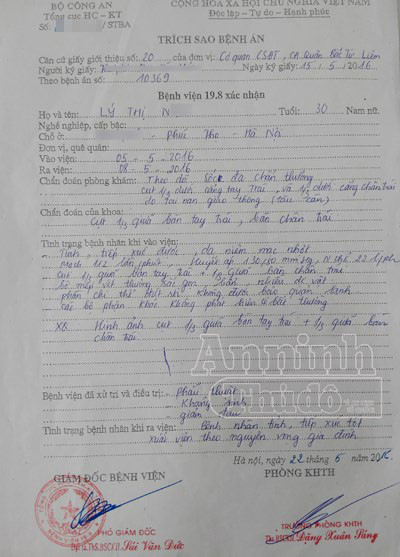 BỘ CÔNG AN
CỘNG HÒA XÃ HỘI CHỦ NGHĨA VIỆT NAM
Tổng cục HC - KT
Độc lập - Tự do - Hạnh phúc
Số: /STBA
TRÍCH SAO BỆNH ÁN
Căn cứ giấy giới thiệu số: 20 của đơn vị: Cơ quan CSĐT, CA Quận Bắc Từ Liêm
Người ký giấy: Ngày ký giấy: 15/5/2016
Theo bệnh án số: 10369
Bệnh viện 19.8 xác nhận
Họ và tên: LÝ THỊ N Tuổi: 30 Nam nữ.
Nghề nghiệp, cấp bậc:
Chỗ ở: - Phúc Thọ - Hà Nội
Đơn vị, quê quán:
Vào viện: 05 - 5 - 2016
Ra viện: 08 - 5 - 2016
Chẩn đoán phòng khám: Theo dõi sốc đa chấn thương
cụt 1/3 dưới cẳng tay trái, và 1/3 dưới cẳng chân trái
do tai nạn giao thông (tàu cán)
Chẩn đoán của khoa:
Cụt 1/3 bàn tay trái, bàn chân trái
Tình trạng bệnh nhân khi vào viện:
- Tỉnh, tiếp xúc được, da niêm mạc nhợt
Mạch 112 lần/phút, Huyết áp 130/80 mmHg, N thở 22 l/ph
cụt 1/3 bàn tay trái + 1/3 bàn chân trái
bờ mép vết thương nham nhiều dị vật
phần chi thể đứt rời không được bảo quản lạnh
các bộ phận khác không phát hiện gì bất thường
XQ: Hình ảnh cụt 1/3 bàn tay trái + 1/3 bàn
chân trái.
Anninh
Thủ đô.vn
Bệnh viện đã xử trí và điều trị: - Phẫu thuật
- Kháng sinh
- giảm đau
Tình trạng bệnh nhân khi ra viện: Bệnh nhân tỉnh, tiếp xúc tốt
xuất viện theo nguyện vọng gia đình
Hà nội, ngày 22 tháng 5 năm 2016
GIÁM ĐỐC BỆNH VIỆN
PHÒNG KHTH
PHÓ GIÁM ĐỐC
TRƯỞNG PHÒNG KHTH
Sái Văn Đức
Đặng Xuân Sáng